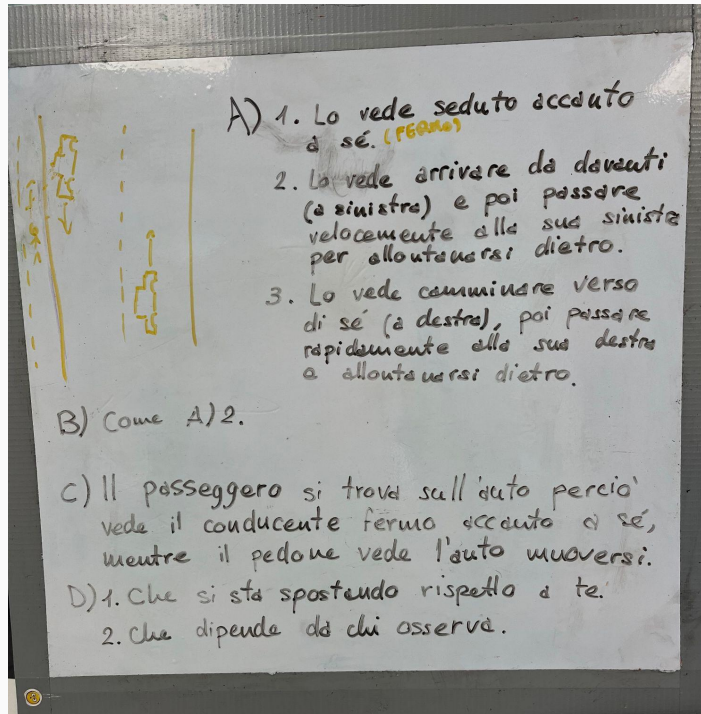 A) 1. Lo vede seduto accanto
a sé. (FERMO)
2. Lo vede arrivare da davanti
(a sinistra) e poi passare
velocemente alla sua sinistra
per allontanarsi dietro.
3. Lo vede camminare verso
di sé (a destra), poi passare
rapidamente alla sua destra
e allontanarsi dietro.
B) Come A) 2.
C) Il passeggero si trova sull'auto perciò
vede il conducente fermo accanto a sé,
mentre il pedone vede l'auto muoversi.
D) 1. Che si sta spostando rispetto a te.
2. Che dipende da chi osserva.